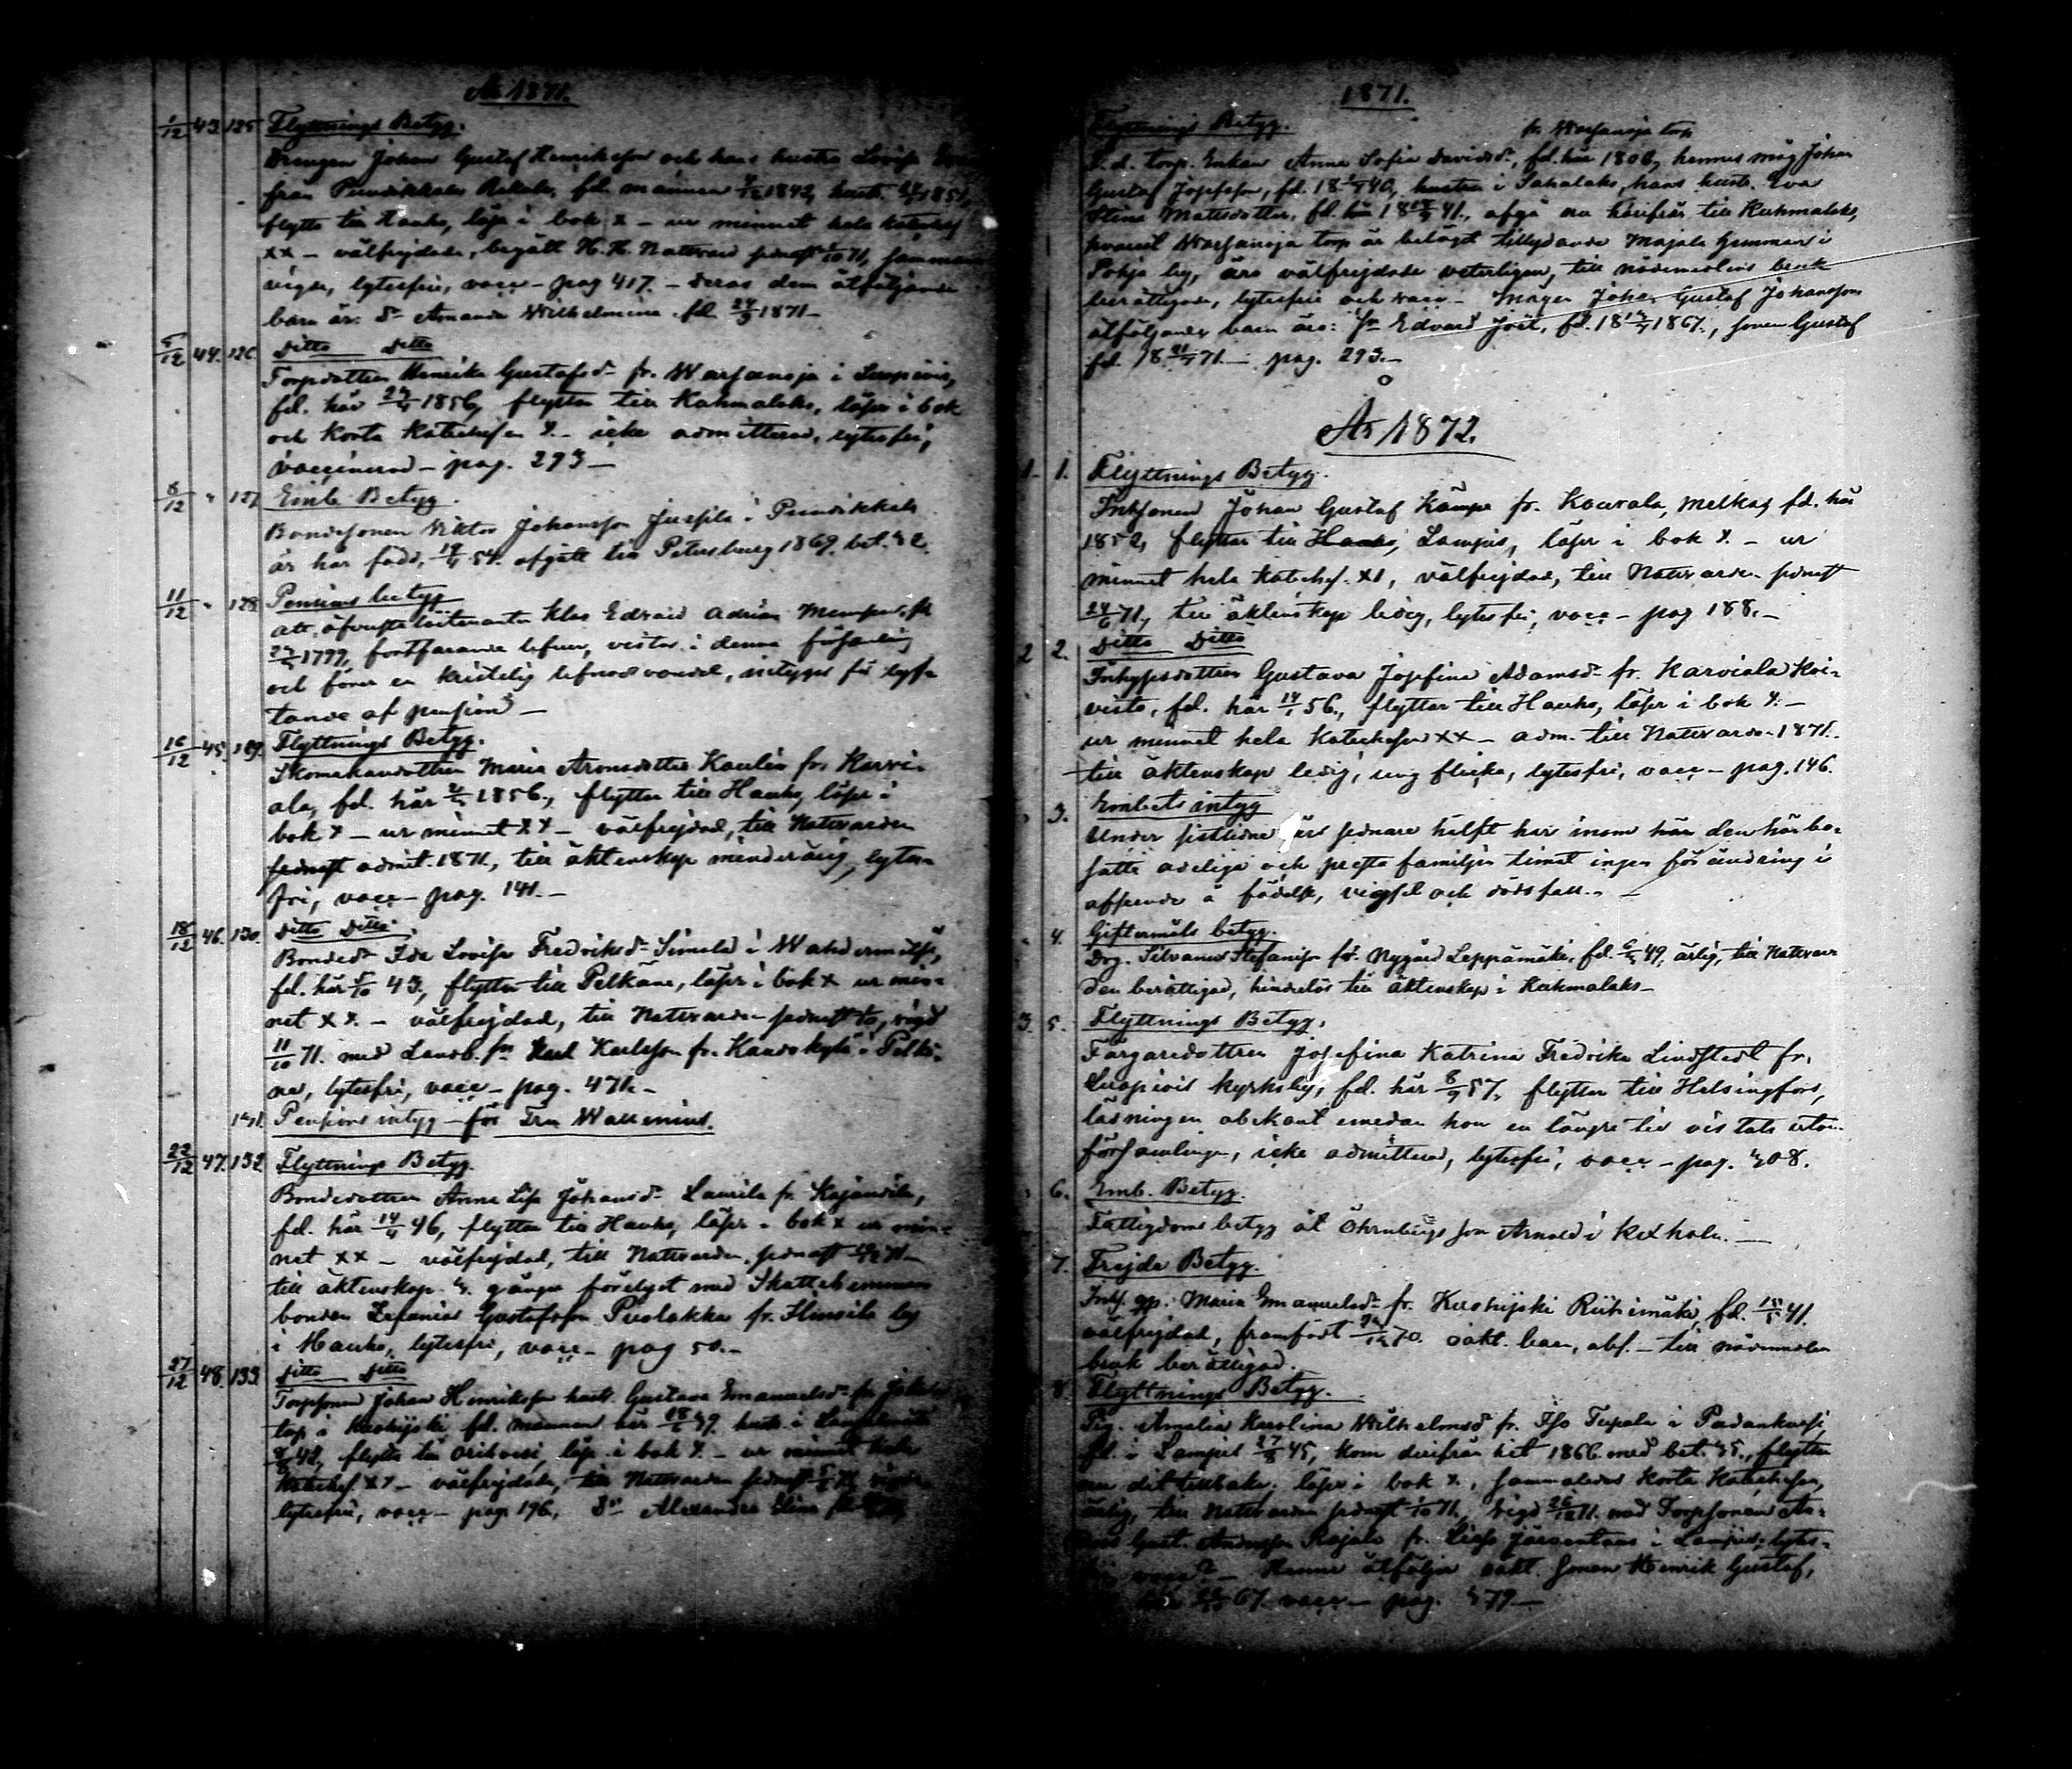 År 1871.
1/12 43. 125 Flyttnings Betyg.
Drengen Johan Gustaf Henriksson och hans hustru Lovisa
från Puurikkala, fd. mannen 1842, hust. 1851,
flytta till Hauho, läser i bok x – ur minnet hela kateches
xx – välfrejdade, begått H. H. Nattvard sednast 1/10 71, samman
vigde, lytesfria, vacc – pag 417. – Deras dem åtföljande
barn är: Dr Amanda Wilhelmina fd. 24/3 1871 –
5/12 44. 126. Ditto Ditto
Torpdottren Henrika Gustafsdr fr. Warsansja i
fd. här 1856, flyttar till Kuhmalaks, läser i bok
och korta katechesen x. – icke admitterad, lytesfri,
vaccinerad – pag. 293 –
8/12 " 127. Emb. Betyg.
Bondesonen Viktor Johansson Jussila i Puurikkala
är här född, 19/4 54. afgått till Petersburg 1869. bet. 42.
11/12 " 128. Pensions betyg
att öfverste löitenanten Klas Edvard Adrian fd
1799, fortfarande lefver, vistas i denna församling
och förer en kristelig lefnadsvandel, intygas för lyf-
tande af pension –
16/12 45. 129. Flyttnings Betyg.
Skomakaredottren Maria Aronsdotter Kaulin fr. Karvi-
ala, fd. här 1856., flyttar till Hauho, läser i
bok x – ur minnet xx – välfrejdad, till Nattvarden
sednast admit. 1871, till äktenskap minderårig, lytes-
fri, vacc – pag. 141. –
18/12 46. 130. Ditto Ditto
Bondedr Ida Lovisa Fredriksdr Simola i
fd. här 43., flyttar till Pelkäne, läser i bok x ur min-
net xx. – välfrejdad, till Nattvarden sednast vigd
11/10 71. med Landb. sn Karl Karlsson fr. i Pelkä-
ne, lytesfri, vacc – pag. 471. –
131. Pensions intyg – för Fru Wallenius.
22/12 47. 132. Flyttnings Betyg.
Bondedottren Anna Lisa Johansdr Laurila fr. Kajanoila,
fd. här 14/4 46, flyttar till Hauho, läser i bok x ur min-
net xx – välfrejdad, till Nattvarden sednast 71 –
till äktenskap 3. gånger förelyst med Skattehemmans
bonden Zefanias Gustafsson fr. by
i Hauho, lytesfri, vacc – pag 50. –
27/12 48. 133. Ditto Ditto
Torpsonen Johan Henriksson hust. Gustava Emanuelsdr fr.
torp i Kuohijoki fd. mannen här 18/6 49. hust. i
42, flytta till Orihvesi, läser i bok x. – ur minnet hela
Kateches. xx – välfrejdade, till Nattvarden sednast
lytesfria, vacc – pag. 196. Dr Alexandra
1871.
Flyttnings Betyg.
fr. Warsansja torp
F.d. torp. Enkan Anna Sofia Davidsdr, fd. här 1806, hennes måg Johan
Gustaf Josefsson, fd. 18 40, hustrun i Sahalaks, hans hust. Eva
Stina Mattsdotter, fd. här 18 41., afgå nu härifrån till Kuhmalaks,
hvarest Warsansja torp är belägit tillydande Majala Hemman i
Pohja by, äro välfrejdade veterligen, till nådemedlens bruk
berättigade, lytesfria och vacc – Mågen Johan Gustaf Johansson
åtföljande barn äro: sn Edvard Joel, fd. 1867., sonen Gustaf
fd. 18 71. – pag. 293. –
År 1872.
1 1. Flyttnings Betyg.
Inhsonen Johan Gustaf Kämpe fr. Kourala, Melkas fd. här
1852, flyttar till Hauho, Lampis, läser i bok x. – ur
minnet hela kateches. xx, välfrejdad, till Nattvarden sednast
24/6 71, till äktenskap ledig, lytesfri, vacc – pag 188. –
2 2. Ditto Ditto
Inhysesdottren Gustava Josefina Adamsdr fr. Karviala Koi-
visto, fd. här 14/1 56., flyttar till Hauho, läser i bok x. –
ur minnet hela Katechesen xx – adm. till Nattvarden 1871.
till äktenskap ledig, ung flicka, lytesfri, vacc – pag. 146.
3. Embets intyg
Under sistlidne års sednare hälft har inom här den här bo-
satte adeliga och presta familjer timat ingen förändring i
afseende å födelse, vigsel och dödsfall. –
4. Giftermåls betyg.
Drg. Silvanus Stefansson fr. Nygård Leppämäki, fd. 6/4 49, ärlig, till Nattvar
den berättigad, hinderlös till äktenskap i Kuhmalaks –
3. 5. Flyttnings Betyg.
Färgaredottren Josefina Katrina Fredrika Lindstedt fr.
Luopiois kyrkoby, fd. här 8/9 57, flyttar till Helsingfors,
läsningen obekant emedan hon en längre tid vistats utom
församlingen, icke admitterad, lytesfri, vacc – pag. 408.
6. Emb. Betyg.
Fattigdoms betyg åt Öhrnbergs son Arnold i Kexholm. –
7. Frejde Betyg.
Inh. qp. Maria Emanuelsdr fr. Kuohijoki Riihimäki, fd. 41.
välfrejdad, framfödt 70. oäkt. barn, abs. – till nådemedlen
bruk berättigad.
8. Flyttnings Betyg.
Pig. Amalia Karolina Wilhelmsdr fr. Iso Tupala i Padankoski
fd. i Lampis 27/8 45, kom derifrån hit 1866 med bet. 45., flyttar
nu dit tillbaka; läser i bok x., sammaledes korta Katechesen,
ärlig, till Nattvarden sednast 1/10 71., vigd 26/12 71. med Torpsonen
Gust. Andersson Rajala fr. i Lampis, lytes-
vacc – Henne åtföljer oäkt. sonen Henrik Gustaf,
67. vacc – pag. 479 –